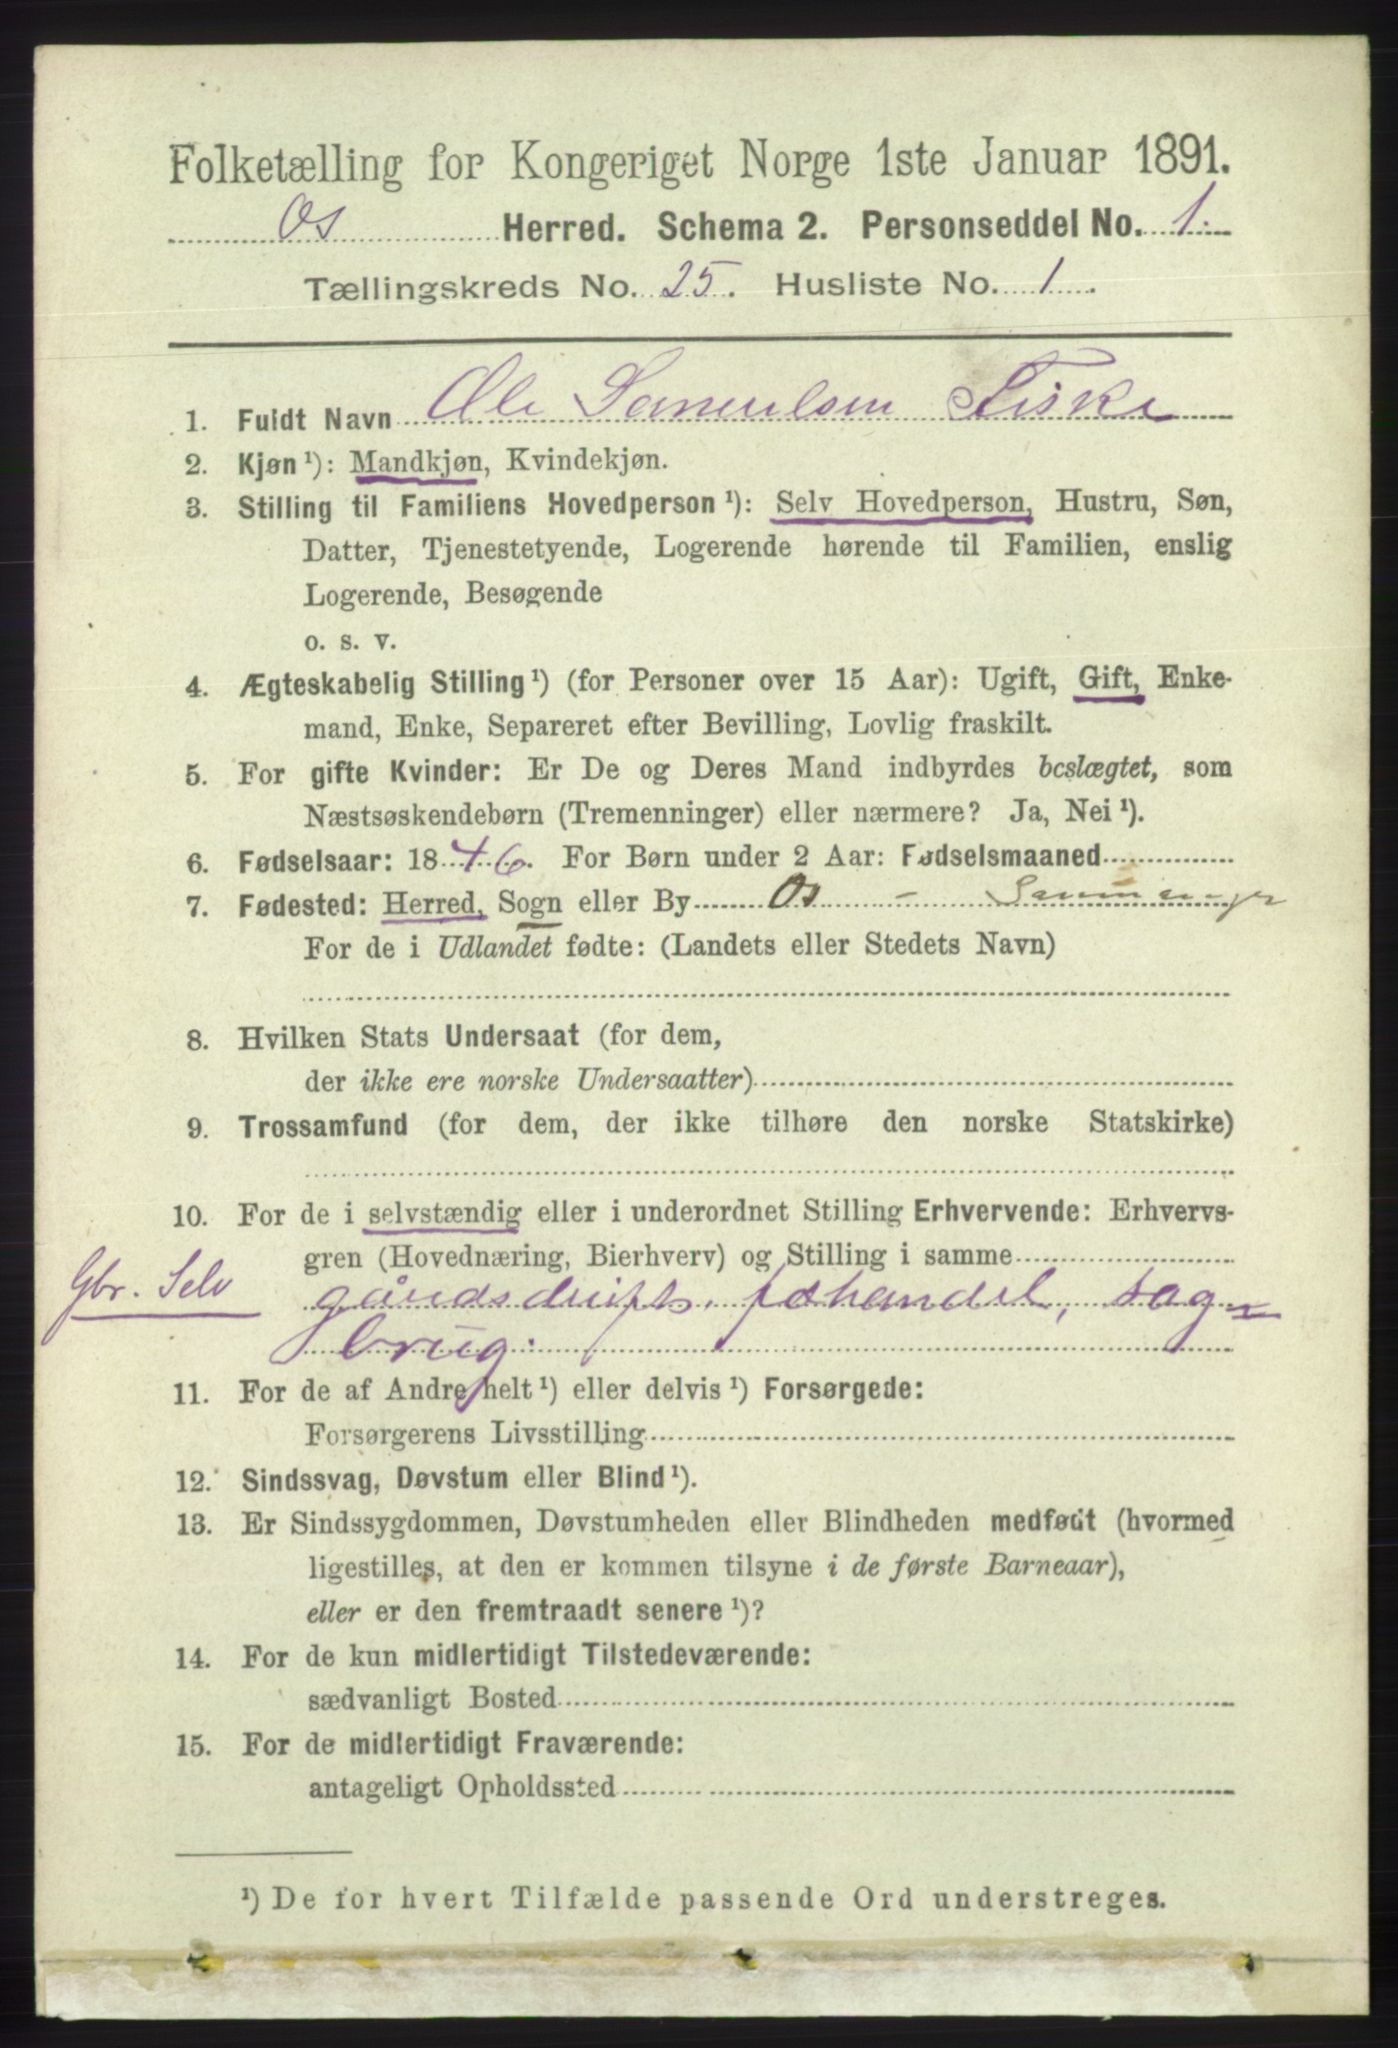 Folketælling for Kongeriget Norge 1ste Januar 1891.
Os Herred. Schema 2. Personseddel No. 1.
Tællingskreds No. 25. Husliste No. 1.
1. Fuldt Navn Ole Samuelsen Fiske
2. Kjøn ¹): Mandkjøn, Kvindekjøn.
3. Stilling til Familiens Hovedperson ¹): Selv Hovedperson, Hustru, Søn,
Datter, Tjenestetyende, Logerende hørende til Familien, enslig
Logerende, Besøgende
o. s. v.
4. Ægteskabelig Stilling ¹) (for Personer over 15 Aar): Ugift, Gift, Enke-
mand, Enke, Separeret efter Bevilling, Lovlig fraskilt.
5. For gifte Kvinder: Er De og Deres Mand indbyrdes beslægtet, som
Næstsøskendebørn (Tremenninger) eller nærmere? Ja, Nei ¹).
6. Fødselsaar: 1846. For Børn under 2 Aar: Fødselsmaaned
7. Fødested: Herred, Sogn eller By Os -
For de i Udlandet fødte: (Landets eller Stedets Navn)
8. Hvilken Stats Undersaat (for dem,
der ikke ere norske Undersaatter)
9. Trossamfund (for dem, der ikke tilhøre den norske Statskirke)
10. For de i selvstændig eller i underordnet Stilling Erhvervende: Erhvervs-
gren (Hovednæring, Bierhverv) og Stilling i samme
Gbr. Selv gårdsdrift, fæhandel, sag-
brug.
11. For de af Andre helt ¹) eller delvis ¹) Forsørgede:
Forsørgerens Livsstilling
12. Sindssvag, Døvstum eller Blind ¹).
13. Er Sindssygdommen, Døvstumheden eller Blindheden medfødt (hvormed
ligestilles, at den er kommen tilsyne i de første Barneaar),
eller er den fremtraadt senere ¹)?
14. For de kun midlertidigt Tilstedeværende:
sædvanligt Bosted
15. For de midlertidigt Fraværende:
antageligt Opholdssted
¹) De for hvert Tilfælde passende Ord understreges.